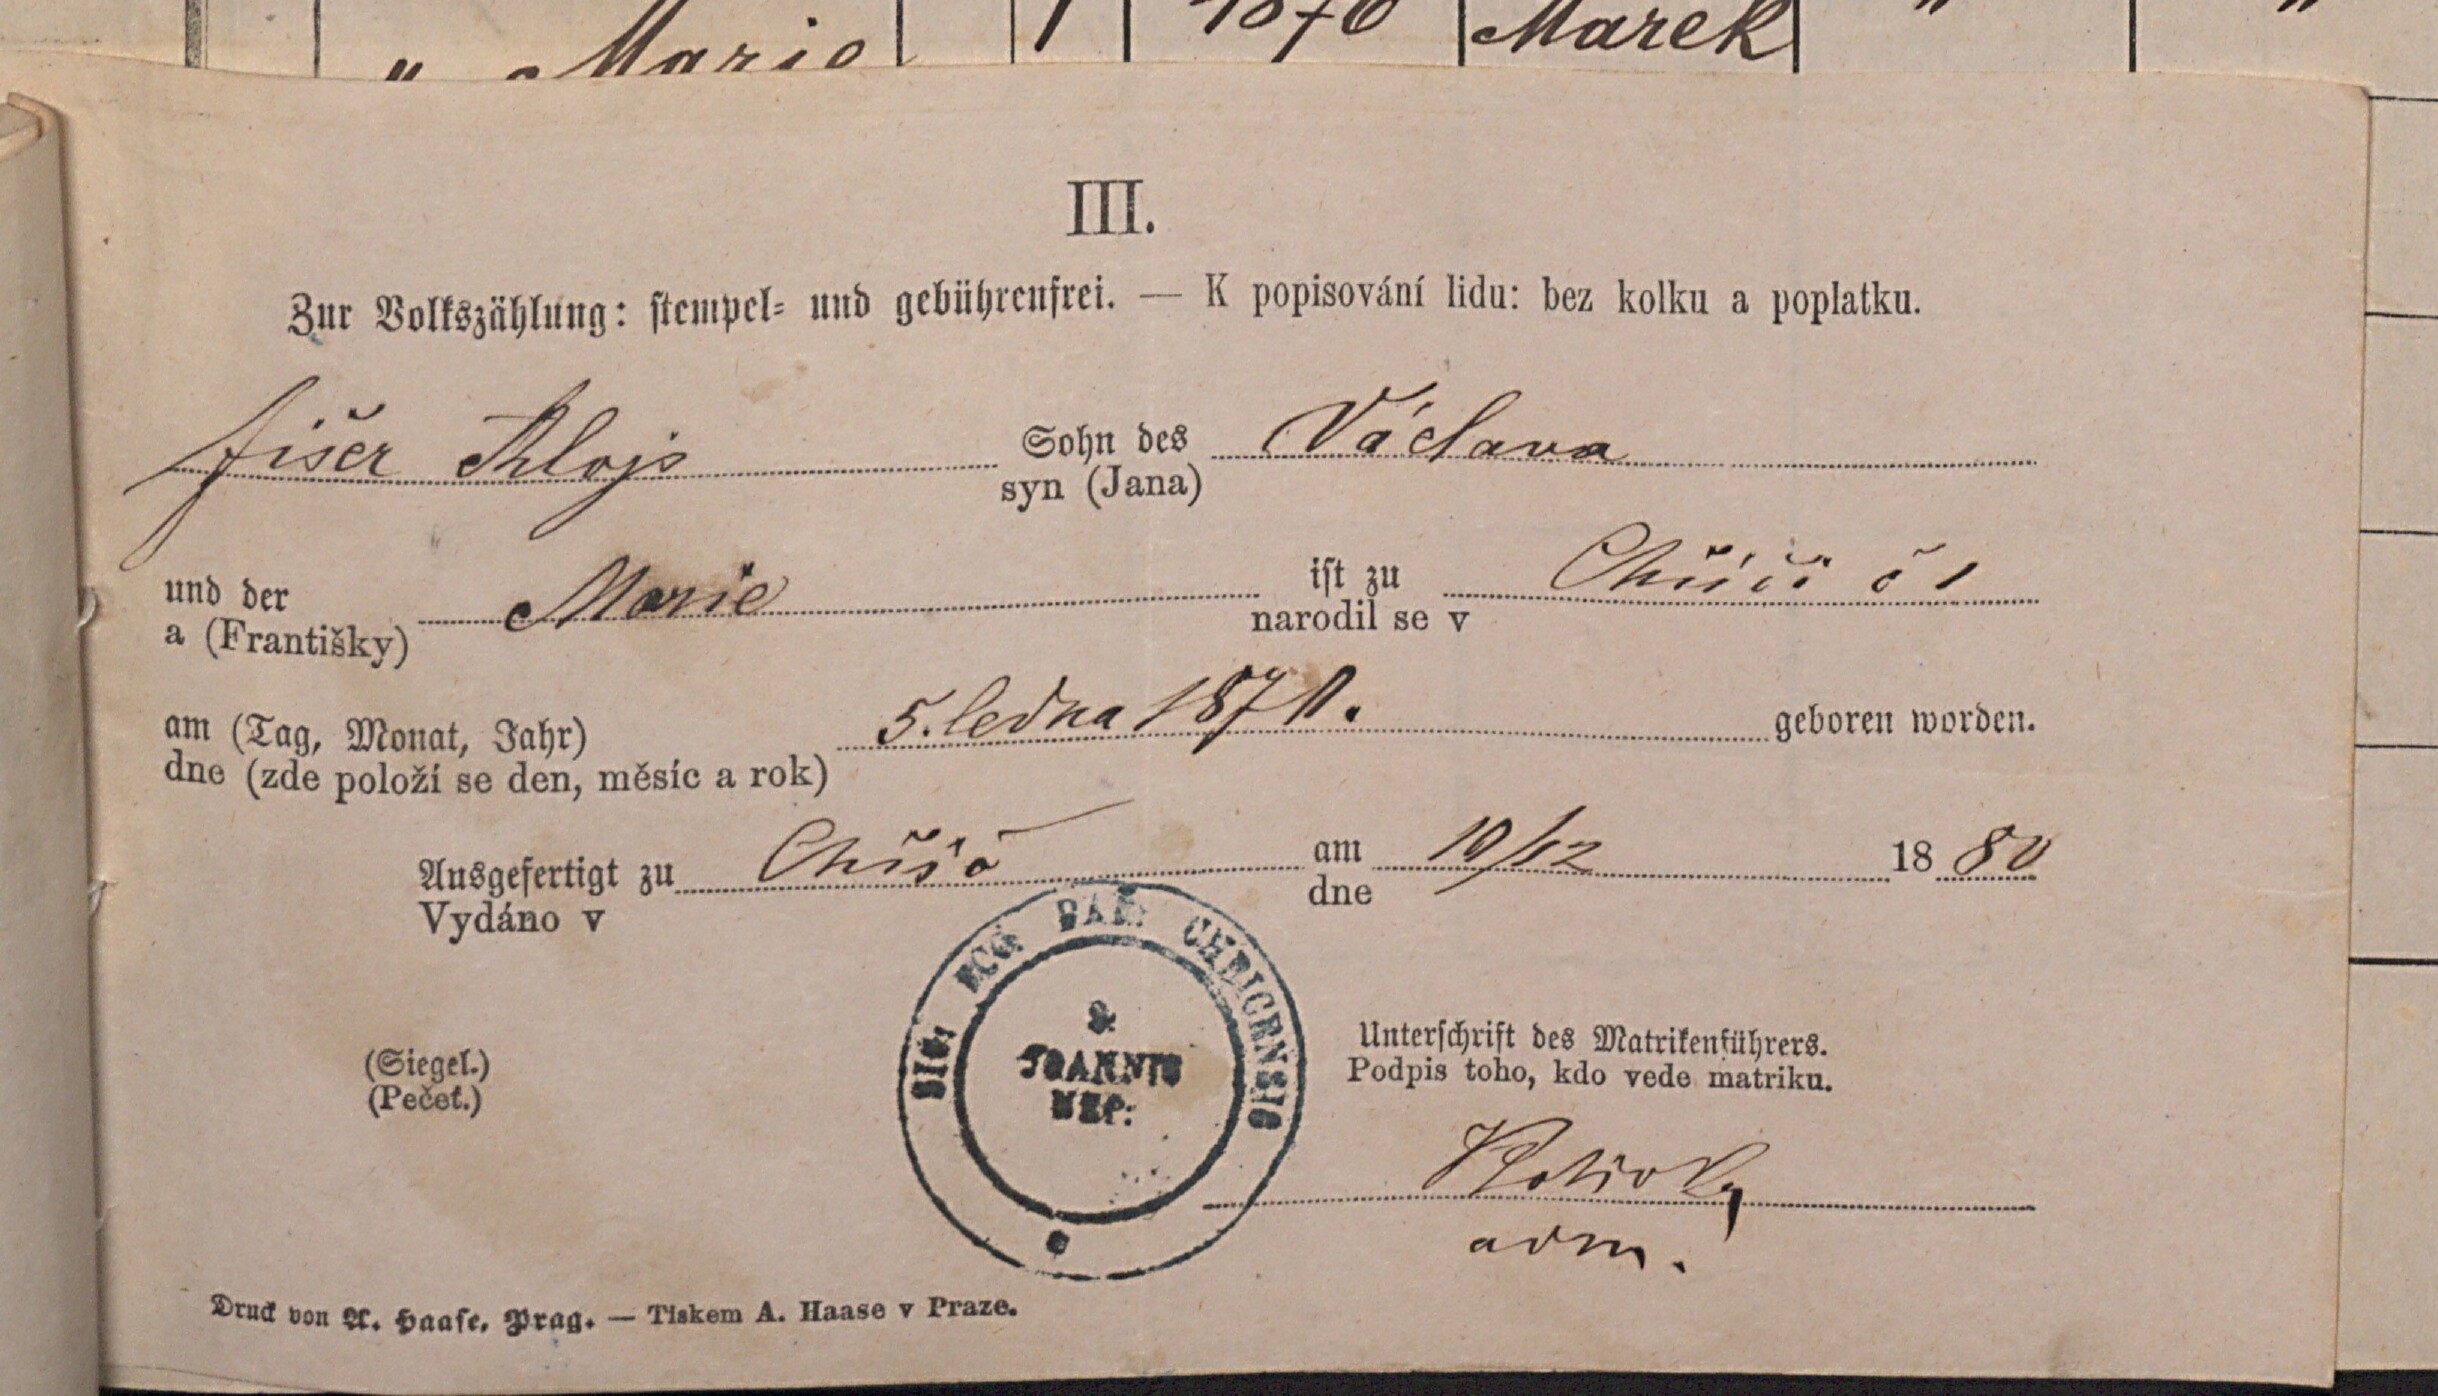 " Marie 1 1876 Marek " "
III.
Zur Volkszählung: stempel- und gebührenfrei. — K popisování lidu: bez kolku a poplatku.
Fišer Alojs Sohn des Václava
syn (Jana)
und der Marie ist zu Chříči č 1
a (Františky) narodil se v
am (Tag, Monat, Jahr) 5. ledna 1871. geboren worden.
dne (zde položí se den, měsíc a rok)
Ausgefertigt zu Chříč am 19/12 1880
Vydáno v dne
SIG. ECC. PAR. CHRICENSIS
S.
JOANNIS
NEP:
(Siegel.)
(Pečeť.)
Unterschrift des Matrikenführers.
Podpis toho, kdo vede matriku.
adm.
Druck von A. Haase, Prag. — Tiskem A. Haase v Praze.